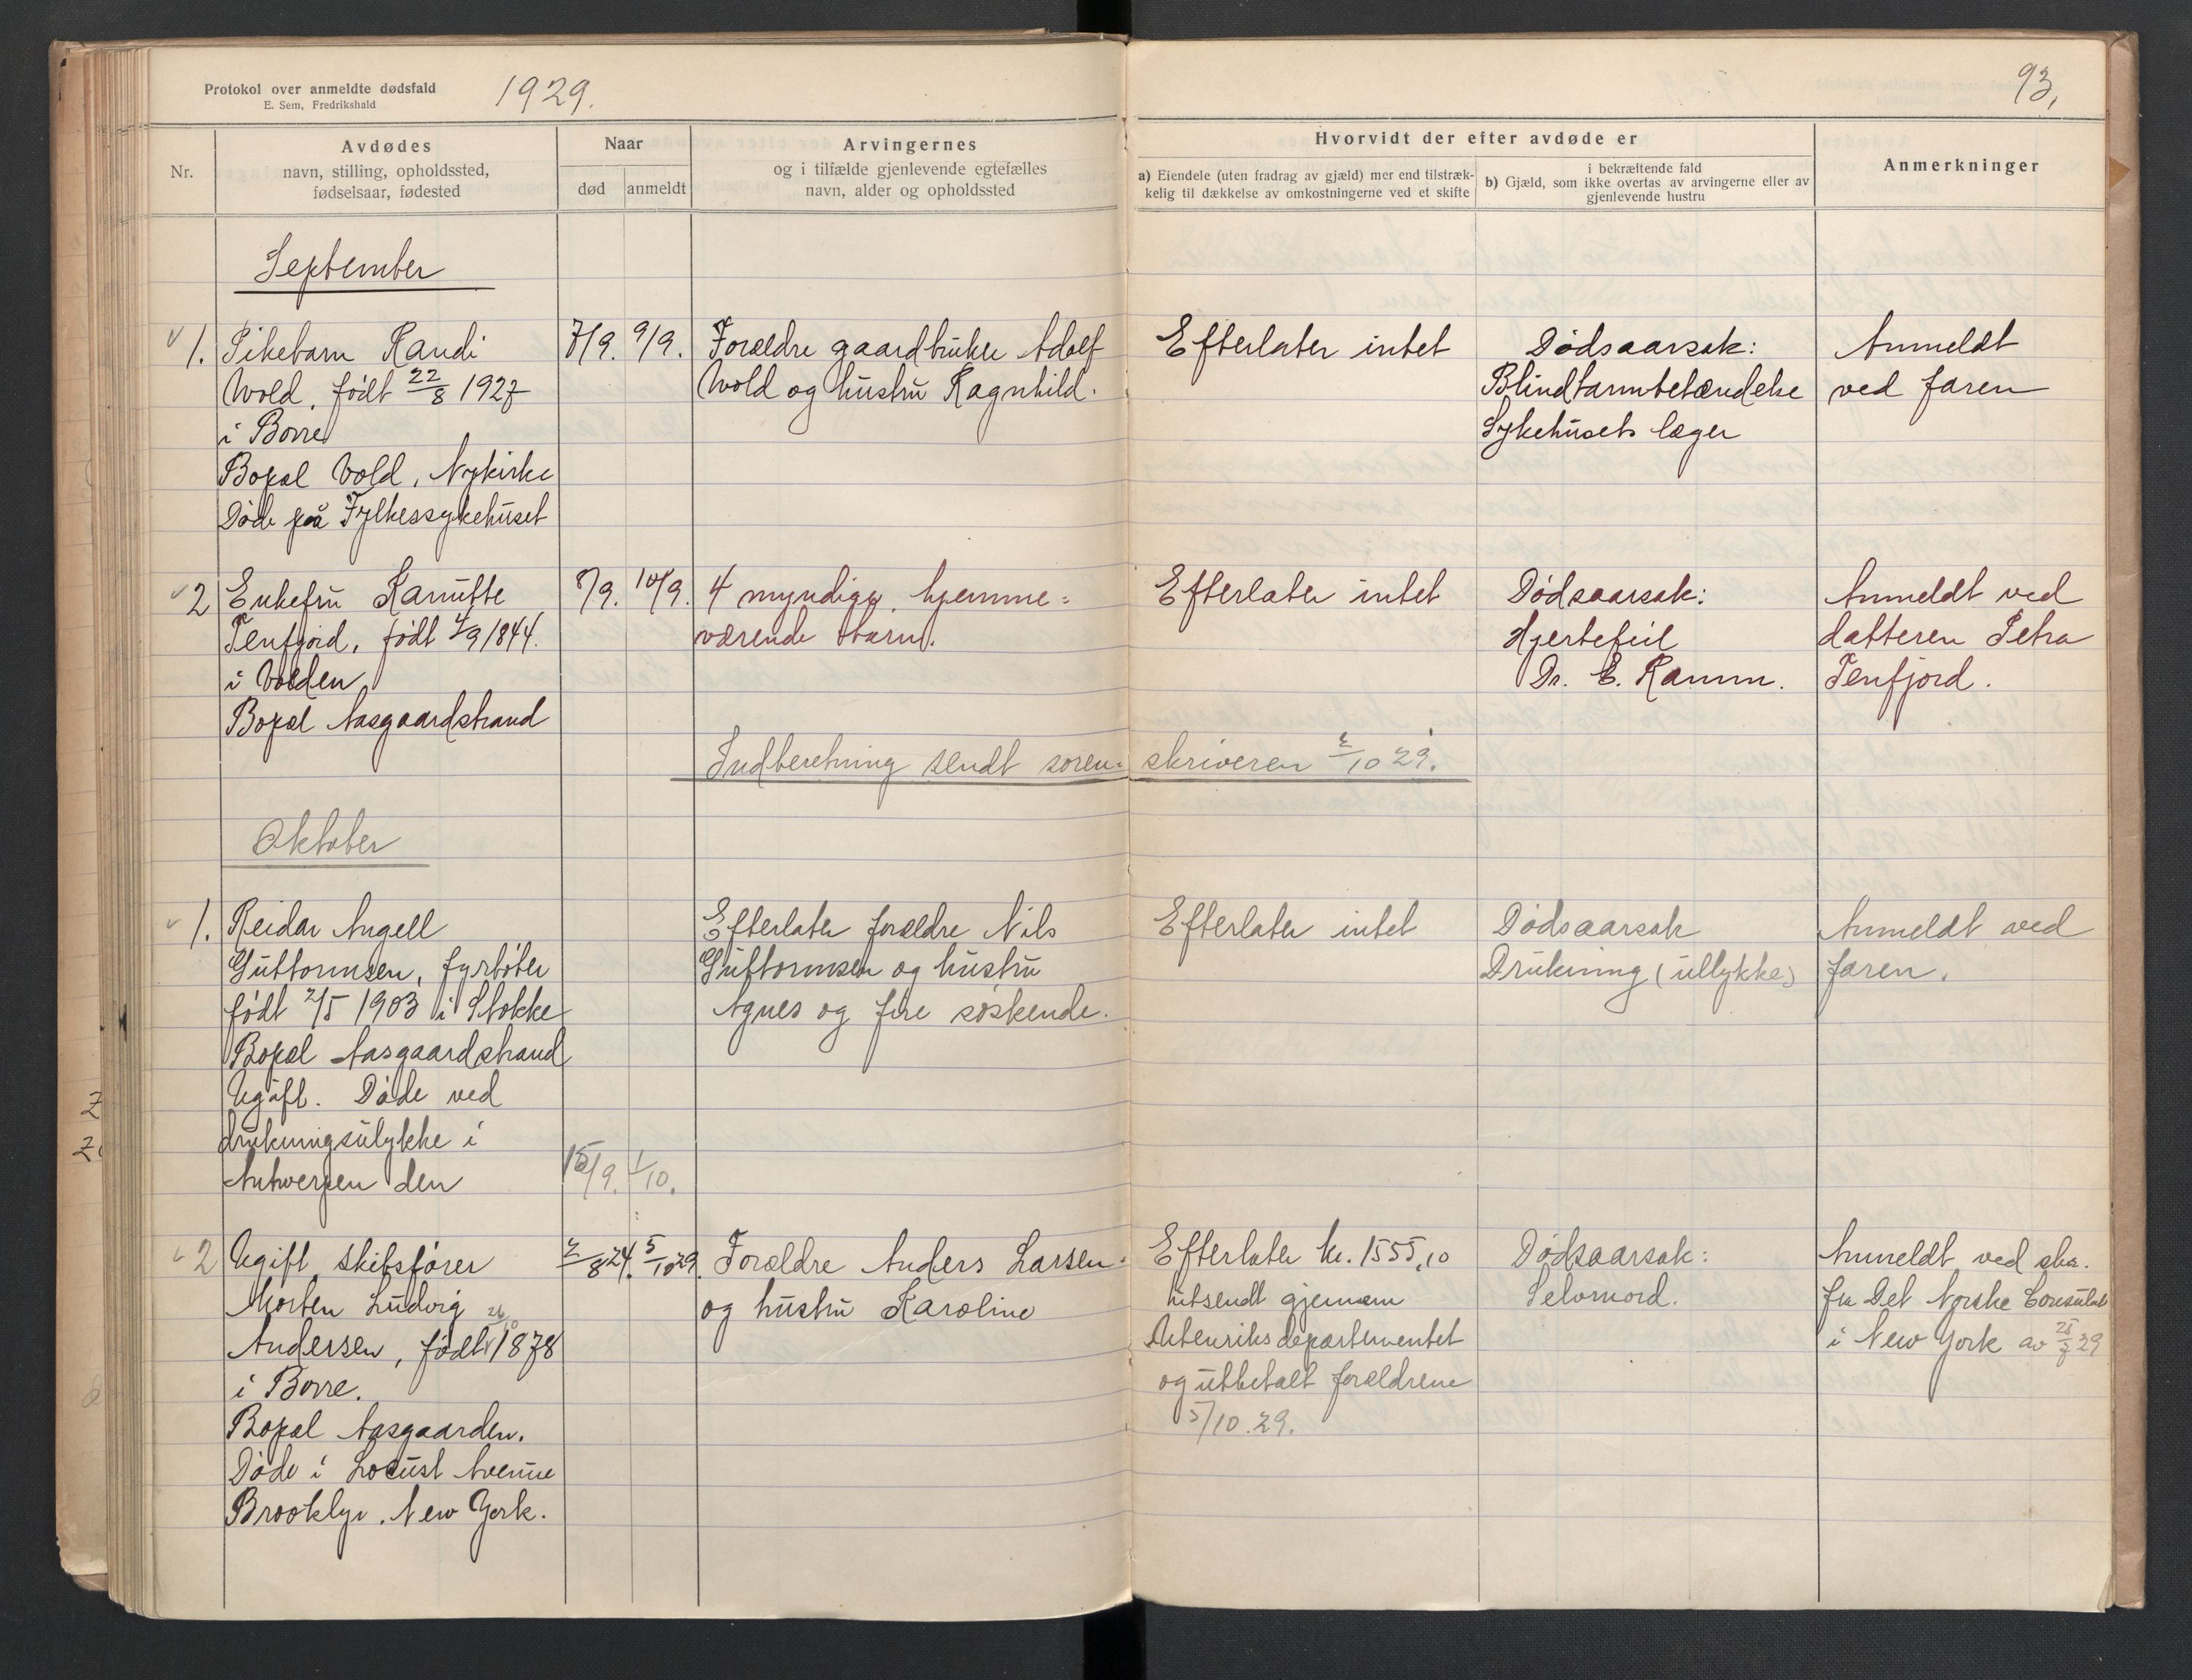 Protokol over anmeldte dødsfald
E. Sem, Fredrikshald
1929.
93,
Nr.
Avdødes
navn, stilling, opholdssted,
fødselsaar, fødested
Naar
død
anmeldt
Arvingernes
og i tilfælde gjenlevende egtefælles
navn, alder og opholdssted
Hvorvidt der efter avdøde er
a) Eiendele (uten fradrag av gjæld) mer end tilstræk-
kelig til dækkelse av omkostningerne ved et skifte
i bekræftende fald
b) Gjæld, som ikke overtas av arvingerne eller av
gjenlevende hustru
Anmerkninger
September
1. Pikebarn Randi
Wold, født 22/8 1927
i Borre
Bopæl Vold, Nykirke
Døde på Fylkessykehuset
7/9. 9/9.
Forældre gaardbruker Adolf
Wold og hustru Ragnhild.
Efterlater intet
Dødsaarsak:
Blindtarmbetændelse
Sykehusets læger
Anmeldt
ved faren
2 Enkefru Kanutte
Tenfjord, født 4/9 1844.
i Volden
Bopæl Aasgaardstrand
8/9. 10/9.
4 myndige, hjemme=
værende barn.
Efterlater intet
Dødsaarsak:
Hjertefeil
Dr. E. Ramm.
Anmeldt ved
datteren Petra
Tenfjord.
Indberetning sendt soren= skriveren 2/10 29.
Oktober
1. Reidar Angell
Guttormsen, fyrbøter
født 2/5 1903 i Stokke
Bopæl Aasgaardstrand
Ugift. Døde ved
drukningsulykke i
Antwerpen den
15/9. 1/10.
Efterlater forældre Nils
Guttormsen og hustru
Agnes og fire søskende.
Efterlater intet
Dødsaarsak
Drukning (ullykke)
Anmeldt ved
faren.
2 Ugift skibsfører
Morten Ludvig
Andersen, født 26/10 1878
i Borre.
Bopæl Aasgaarden.
Døde i Locust Avenue
Brooklyn. New York.
2/8 24. 5/10 29.
Forældre Anders Larsen
og hustru Karoline
Efterlater kr. 1555,10
utsendt gjennem
Utenriksdepartementet
og utbetalt forældrene
5/10.29.
Dødsaarsak:
Selvmord.
Anmeldt ved skr.
fra Det Norske Consulat
i New York av 25/7 29